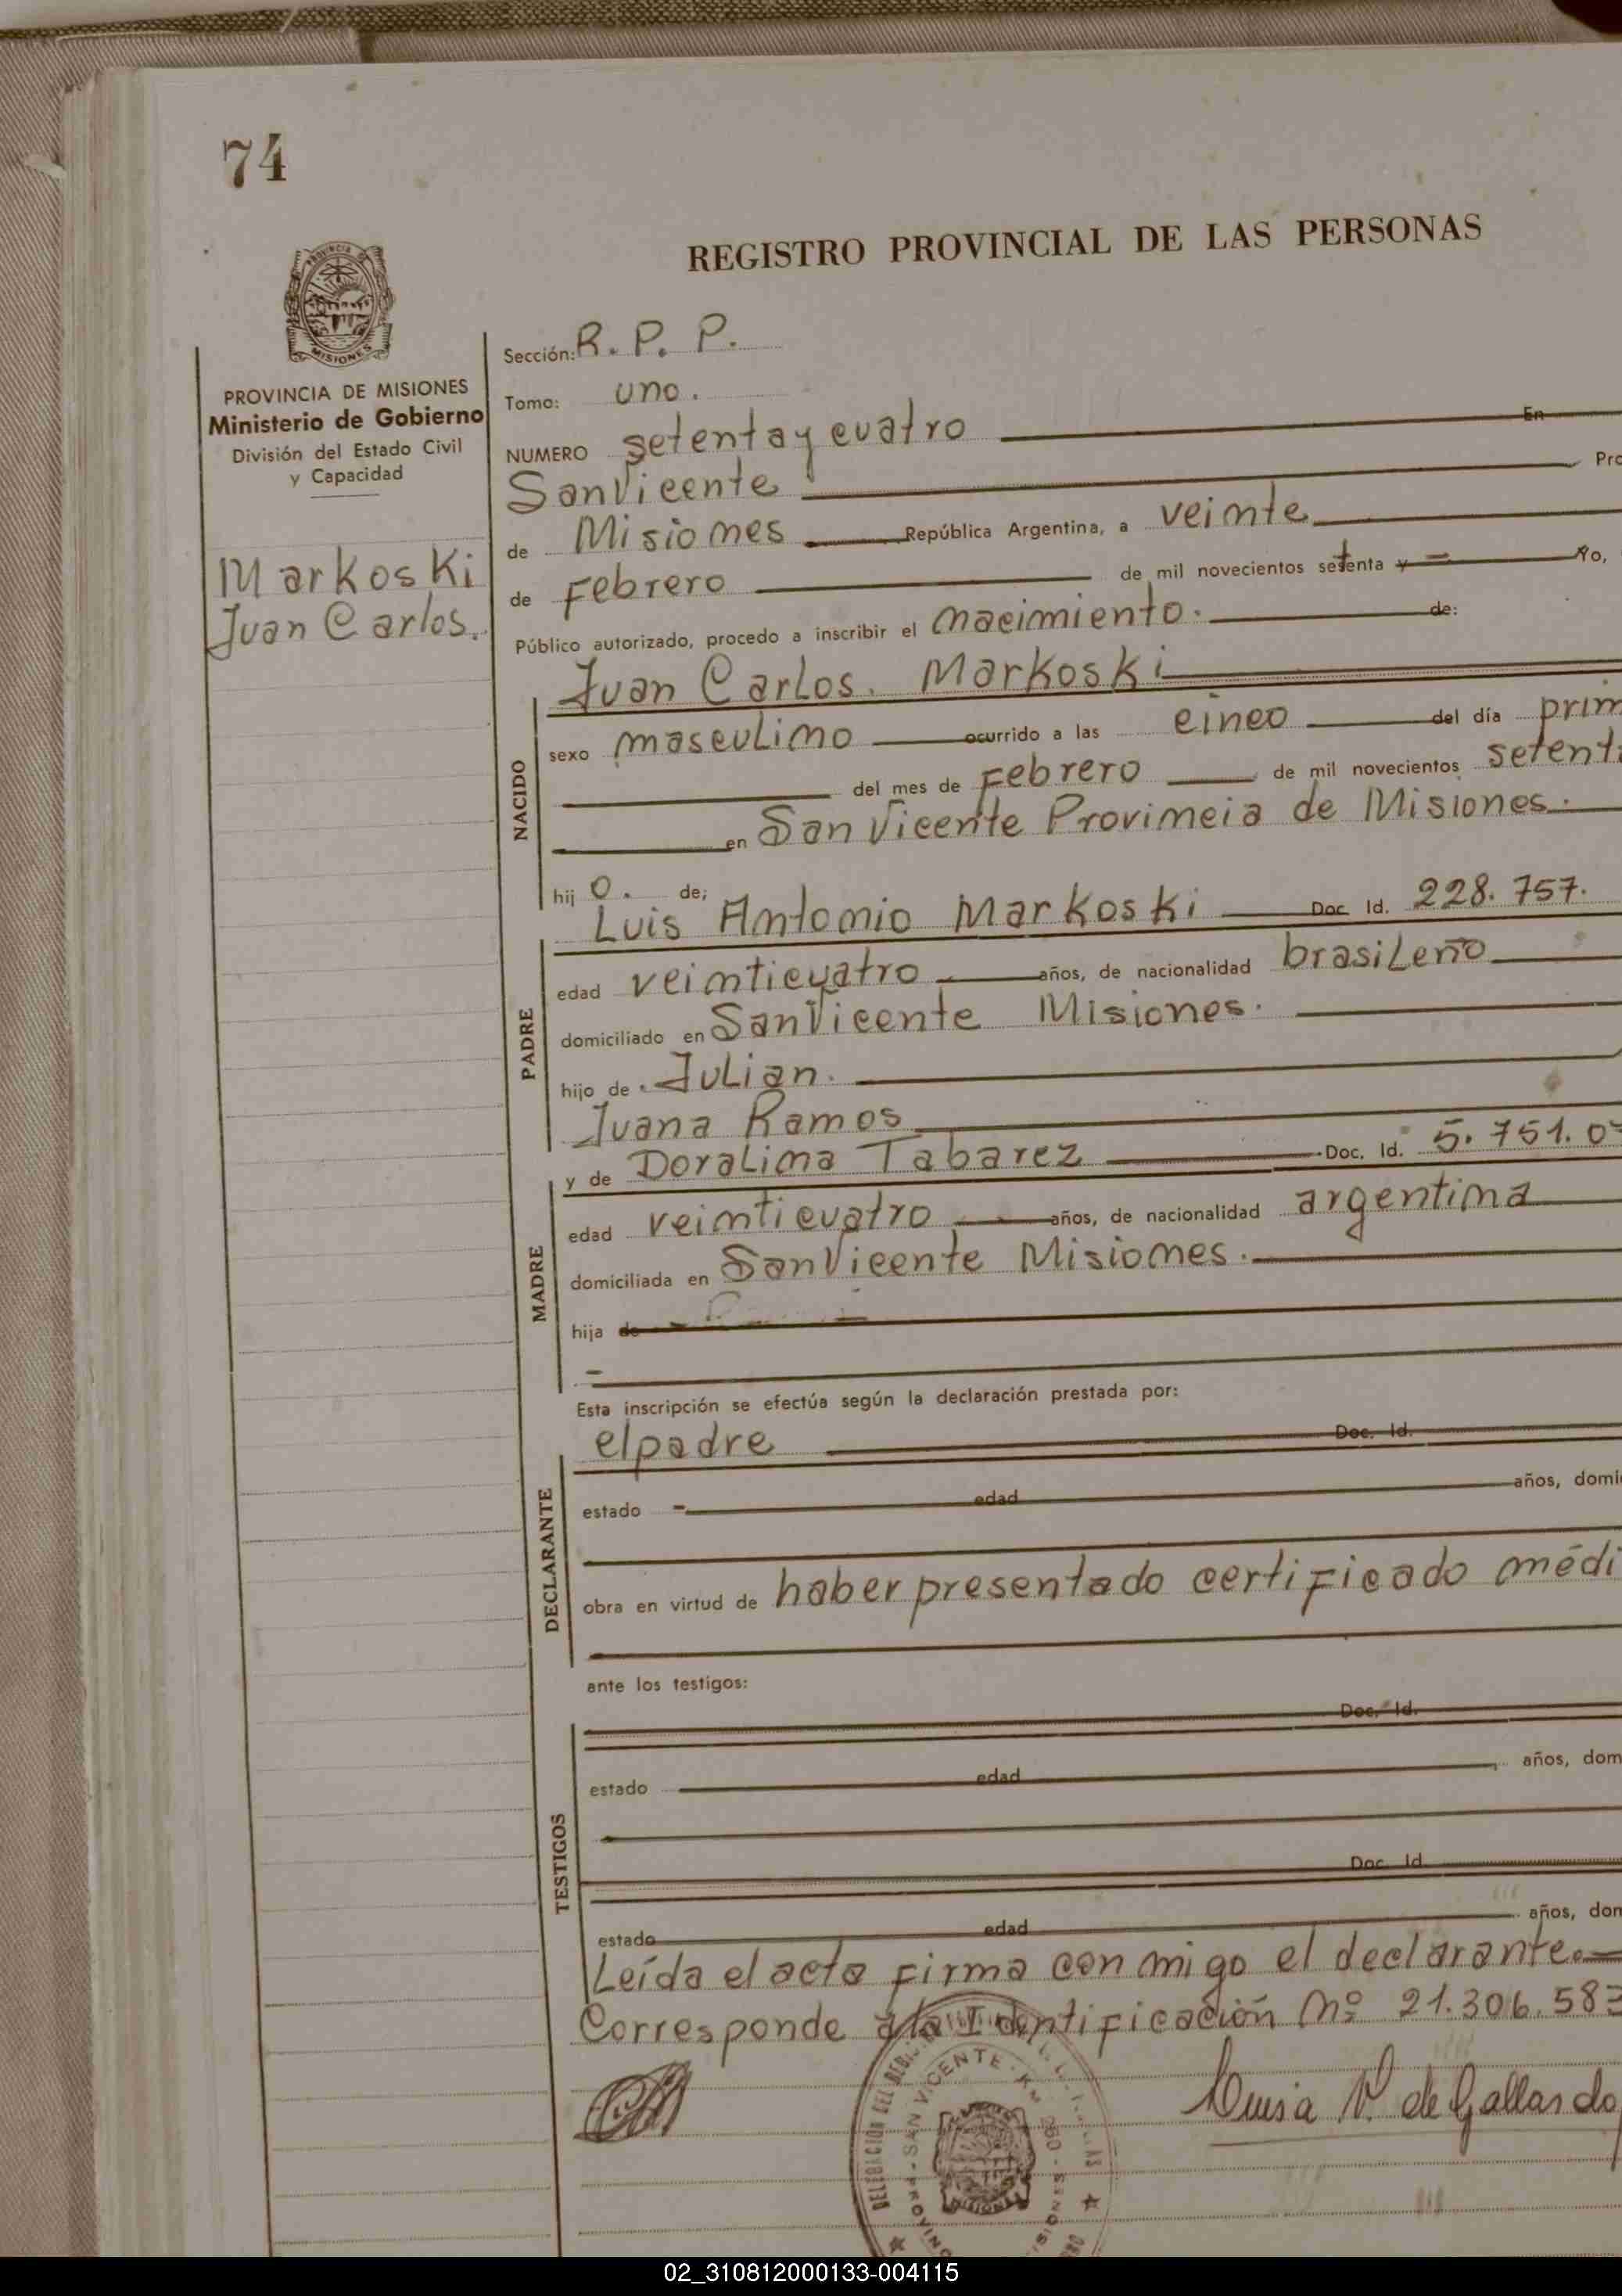 74
REGISTRO PROVINCIAL DE LAS PERSONAS
PROVINCIA DE MISIONES
Ministerio de Gobierno
División del Estado Civil
y Capacidad
Markoski
Juan Carlos.
Sección: R. P. P.
Tomo: uno.
NUMERO setenta y cuatro En
San Vicente
de Misiones República Argentina, a veinte
de Febrero de mil novecientos setenta y Yo,
Público autorizado, procedo a inscribir el nacimiento. de:
NACIDO
Juan Carlos. Markoski
sexo masculino ocurrido a las cinco del día
del mes de Febrero de mil novecientos
en San Vicente Provincia de Misiones.
hij o. de;
PADRE
Luis Antonio Markoski Doc Id. 228.757.
edad veinticuatro años, de nacionalidad brasileño
domiciliado en San Vicente Misiones.
hijo de Julian.
Juana Ramos
MADRE
y de Doralina Tabarez Doc. Id. 5.751.0
edad veinticuatro años, de nacionalidad argentina
domiciliada en San Vicente Misiones.
hija de
Esta inscripción se efectúa según la declaración prestada por:
DECLARANTE
el padre Doc. Id.
estado edad años,
obra en virtud de haber presentado certificado
ante los testigos:
TESTIGOS
Doc. Id.
estado edad años,
Doc. Id.
estado edad años,
Leída el acta firma conmigo el declarante.
Corresponde a la Identificación Nº 21.306.583
Luisa V. de Gallardo
SAN VICENTE
MISIONES
02_310812000133-004115